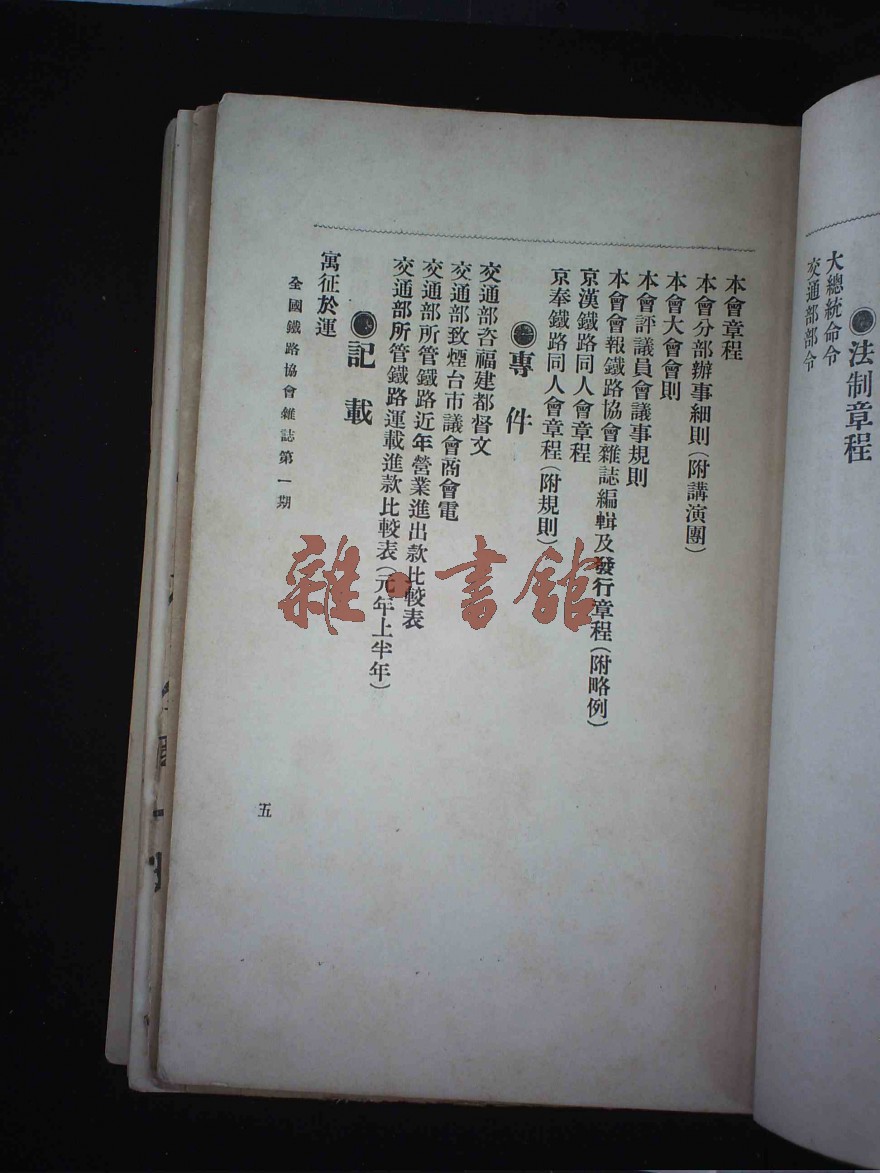 ●法制章程
大總統命令
交通部部令
本會章程
本會分部辦事細則(附講演團)
本會大會會則
本會評議員會議事規則
本會會報鐵路協會雜誌編輯及發行章程(附略例)
京漢鐵路同人會章程
京奉鐵路同人會章程(附規則)
●專件
交通部咨福建都督文
交通部致煙台市議會商會電
交通部所管鐵路近年營業進出款比較表
交通部所管鐵路運載進款比較表(元年上半年)
●記載
寓征於運
全國鐵路協會雜誌第一期
五
雜·書館